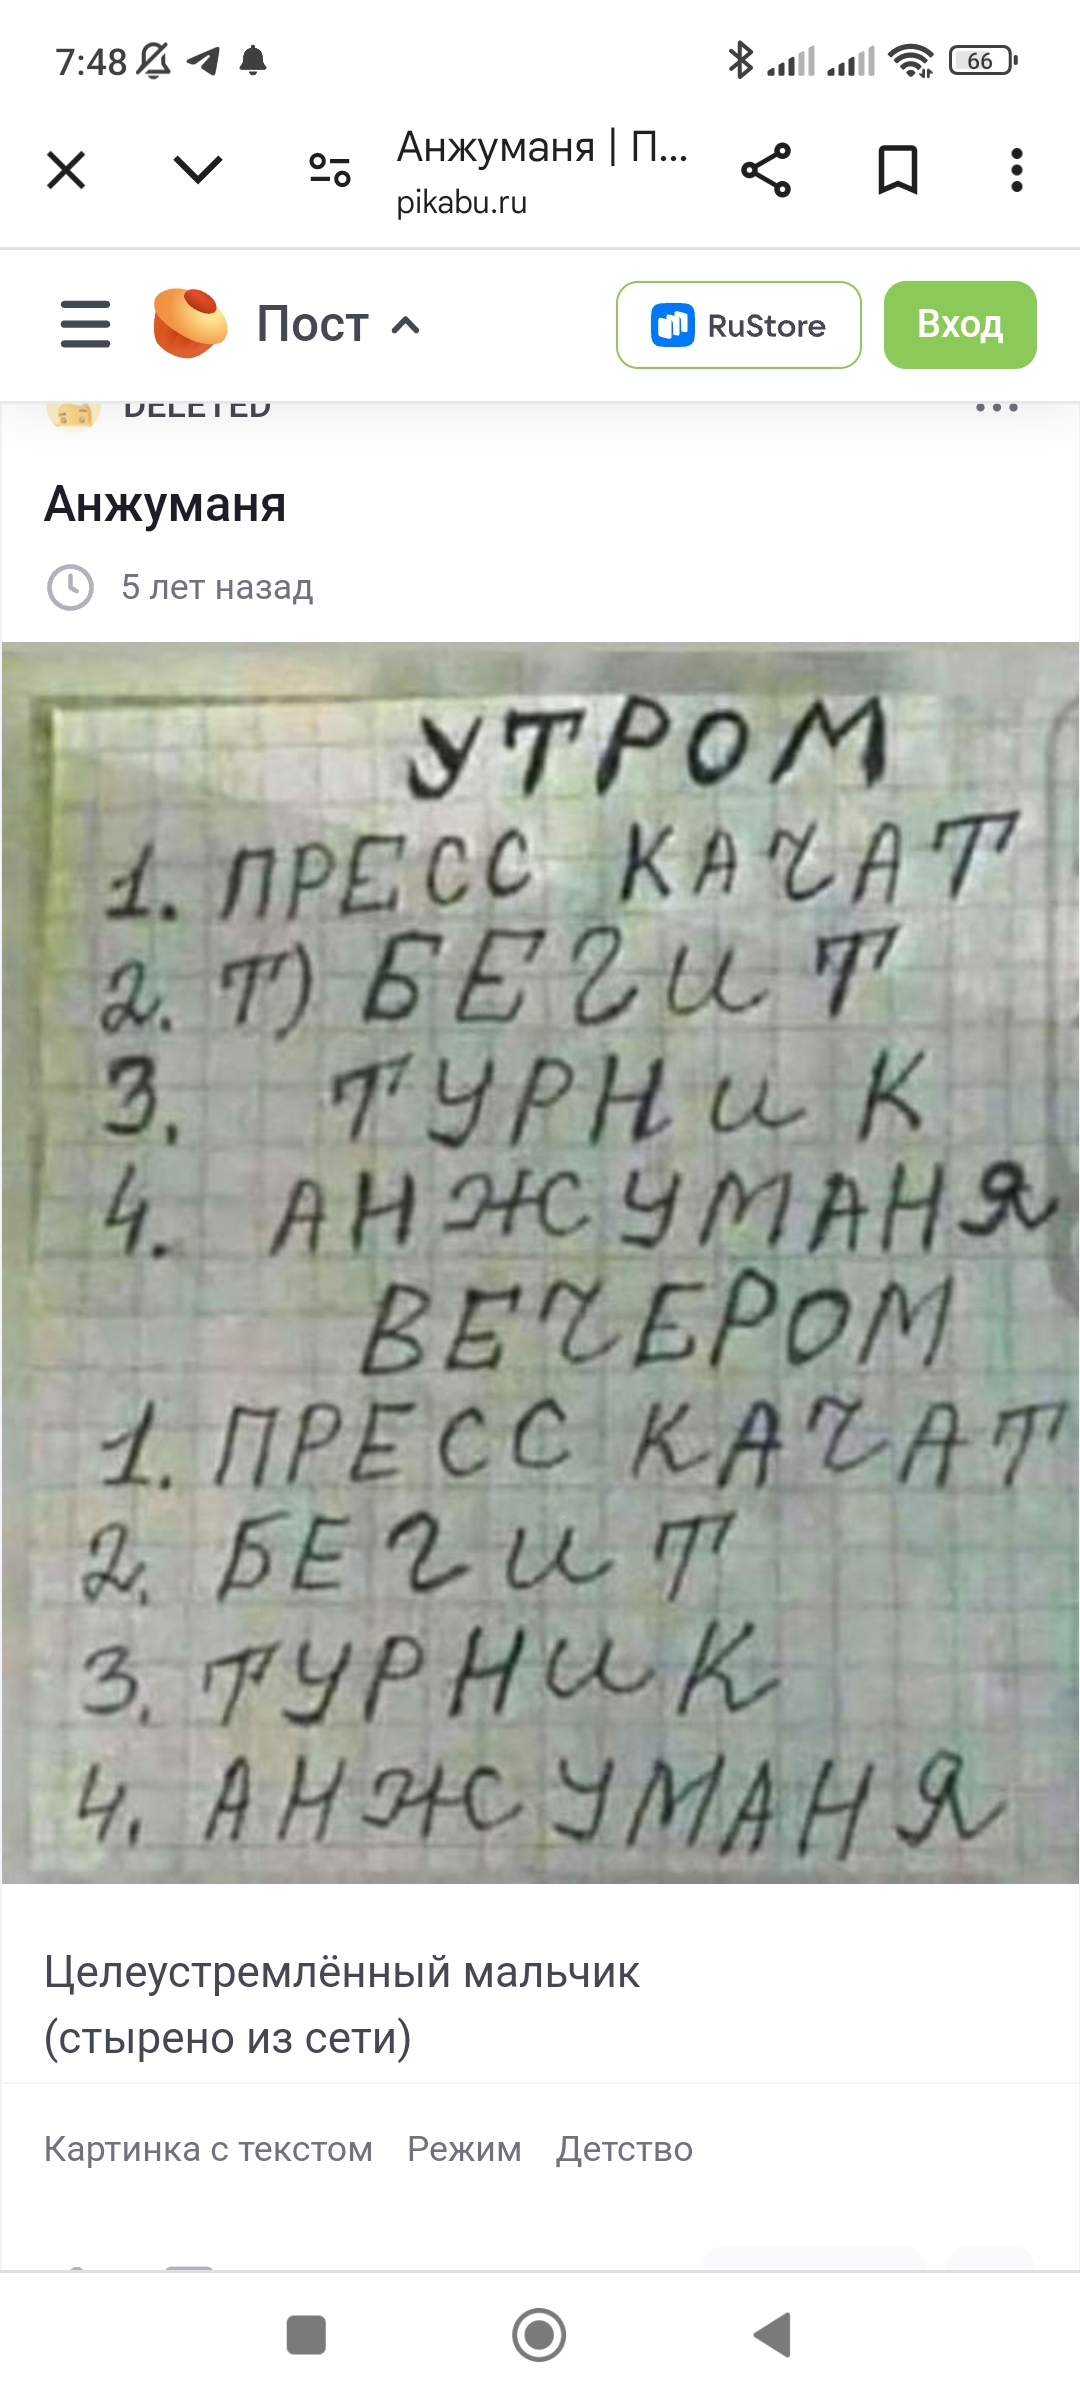 7:48
66
Анжуманя | П...
pikabu.ru
Пост
RuStore
Вход
DELETED
Анжуманя
5 лет назад
УТРОМ
1. ПРЕСС КАЧАТ
2. Т) БЕГИТ
3. ТУРНИК
4. АНЖУМАНЯ
ВЕЧЕРОМ
1. ПРЕСС КАЧАТ
2. БЕГИТ
3. ТУРНИК
4. АНЖУМАНЯ
Целеустремлённый мальчик
(стырено из сети)
Картинка с текстом Режим Детство